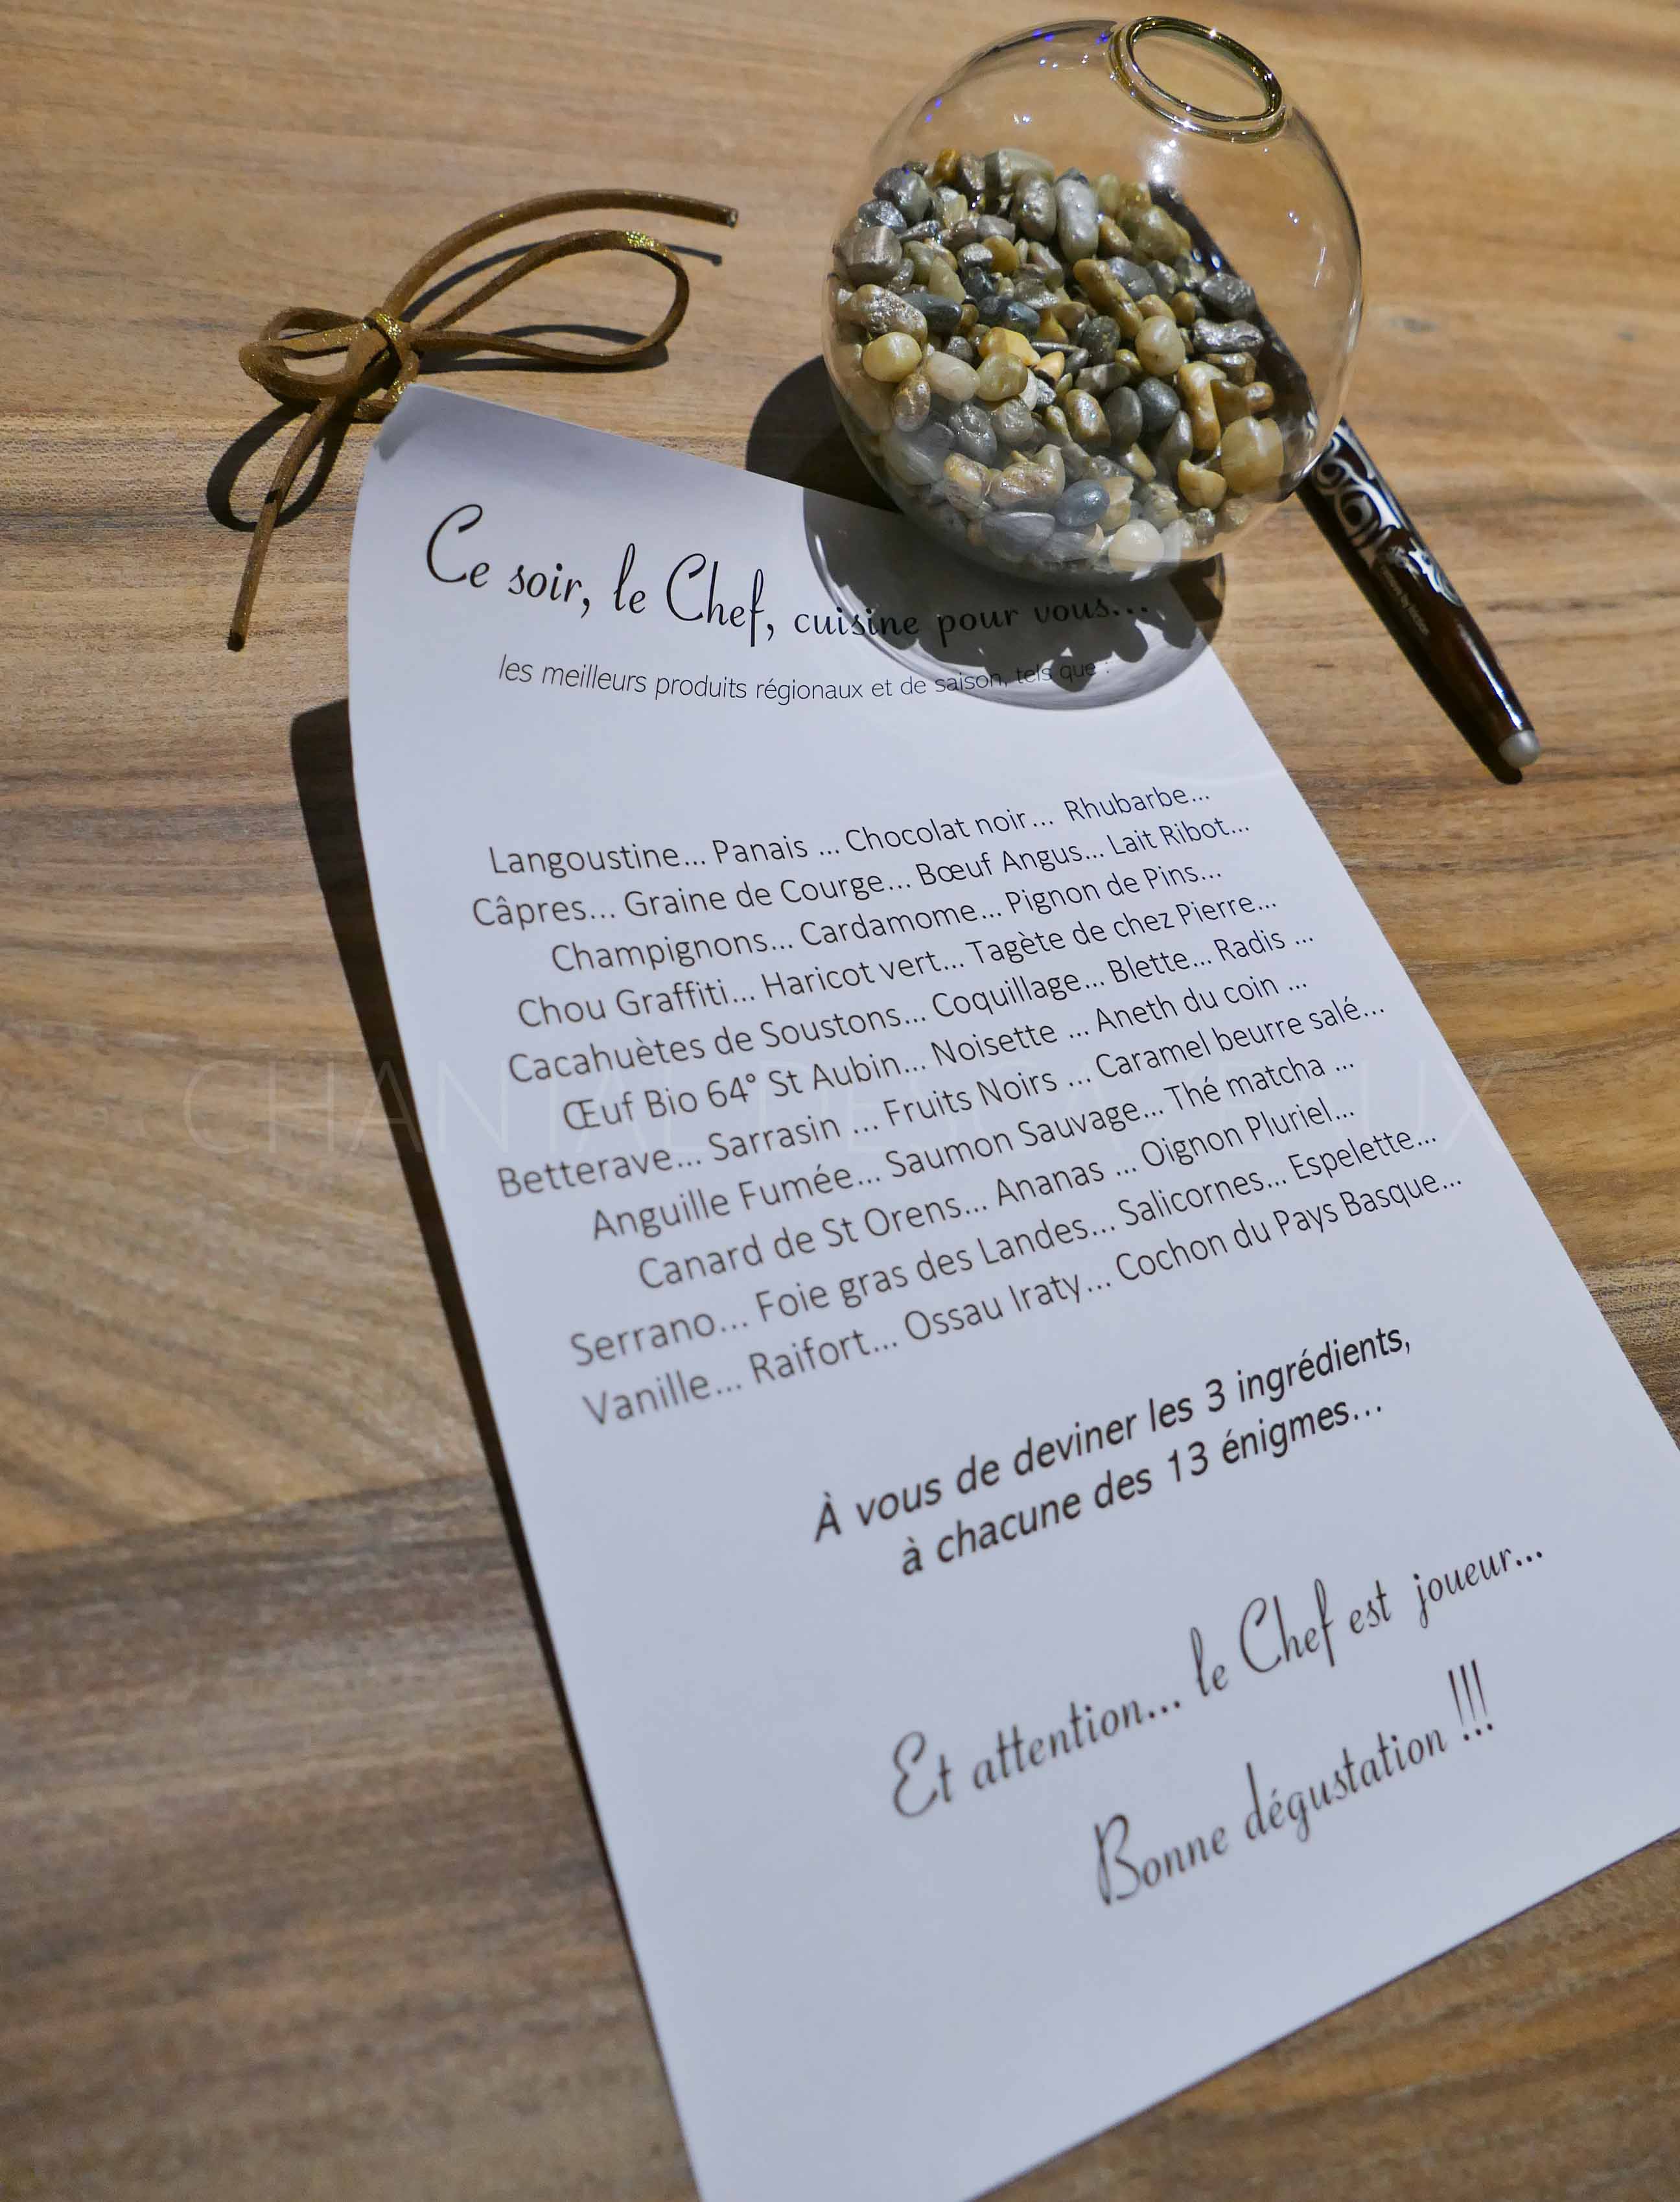 Ce soir, le Chef, cuisine pour vous...
les meilleurs produits régionaux et de saison, tels que :
Langoustine... Panais ... Chocolat noir... Rhubarbe...
Câpres... Graine de Courge... Bœuf Angus... Lait Ribot...
Champignons... Cardamome... Pignon de Pins...
Chou Graffiti... Haricot vert... Tagète de chez Pierre...
Cacahuètes de Soustons... Coquillage... Blette... Radis ...
Œuf Bio 64° St Aubin... Noisette ... Aneth du coin ...
Betterave... Sarrasin ... Fruits Noirs ... Caramel beurre salé...
Anguille Fumée... Saumon Sauvage... Thé matcha ...
Canard de St Orens... Ananas ... Oignon Pluriel...
Serrano... Foie gras des Landes... Salicornes... Espelette...
Vanille... Raifort... Ossau Iraty... Cochon du Pays Basque...
À vous de deviner les 3 ingrédients,
à chacune des 13 énigmes...
Et attention... le Chef est joueur...
Bonne dégustation !!!
CHANTAL